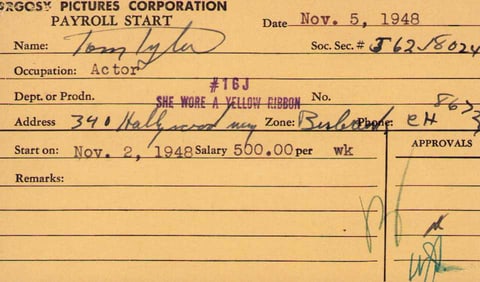 ARGOSY PICTURES CORPORATION
PAYROLL START
Date Nov. 5, 1948
Name: Tom Tyler
Soc. Sec. #
Occupation: Actor
#16J
Dept. or Prodn. SHE WORE A YELLOW RIBBON No.
Address 340 Hollywood way Zone: Burbank Phone: CH 8673
Start on: Nov. 2, 1948 Salary 500.00 per wk
APPROVALS
Remarks: